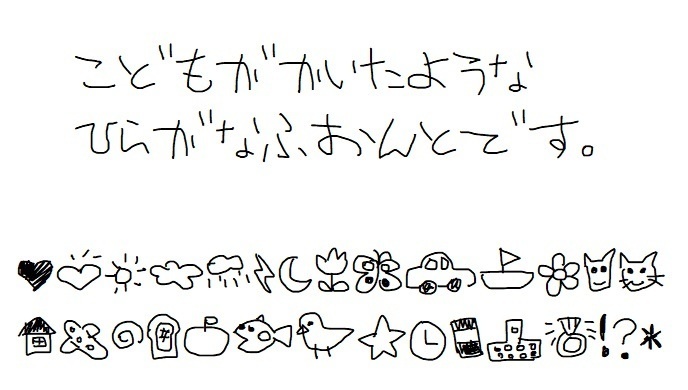 こどもがかいたような
ひらがなふぉんとです。
!?*